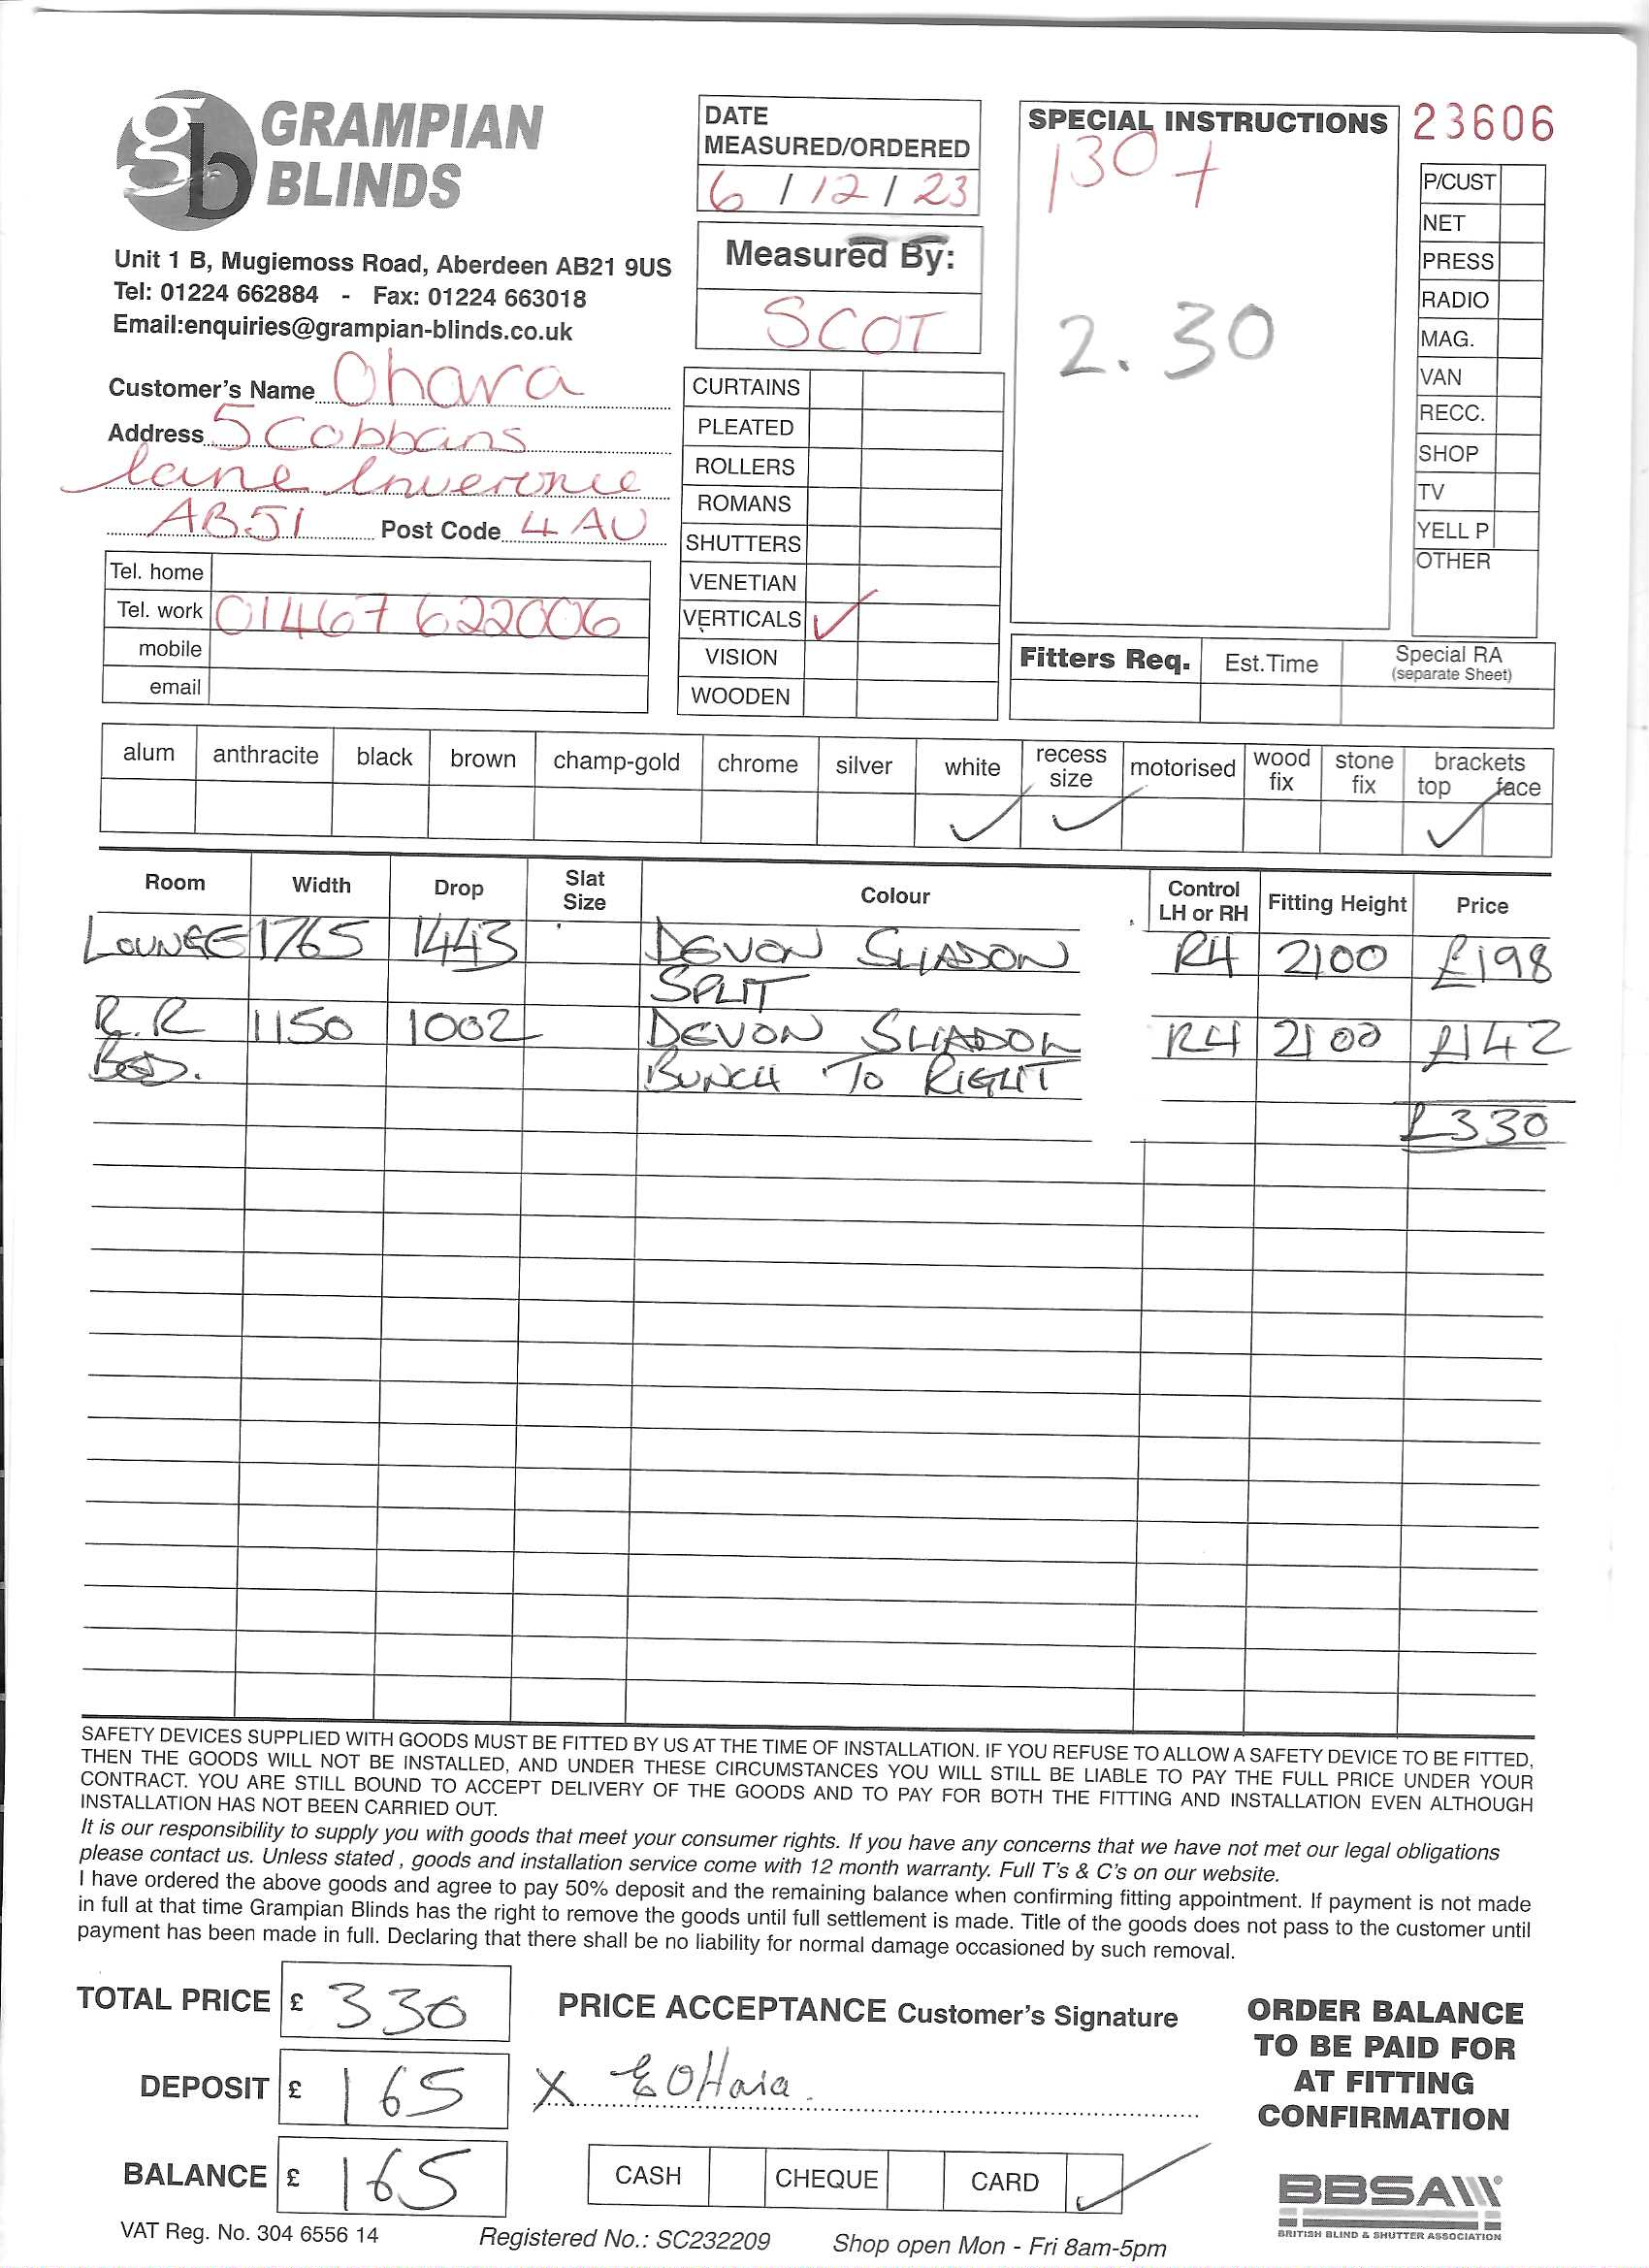 gb GRAMPIAN BLINDS
Unit 1 B, Mugiemoss Road, Aberdeen AB21 9US
Tel: 01224 662884 - Fax: 01224 663018
Email:enquiries@grampian-blinds.co.uk
Customer's Name Ohara
Address 5 Cobbans
lane Inverurie
AB51 Post Code 4 AU
Tel. home
Tel. work 01467 622006
mobile
email
DATE
MEASURED/ORDERED
6 / 12 / 23
Measured By:
SCOT
CURTAINS
PLEATED
ROLLERS
ROMANS
SHUTTERS
VENETIAN
VERTICALS ✓
VISION
WOODEN
SPECIAL INSTRUCTIONS
130 +
2.30
23606
P/CUST
NET
PRESS
RADIO
MAG.
VAN
RECC.
SHOP
TV
YELL P
OTHER
Fitters Req. Est.Time Special RA
(separate Sheet)
alum anthracite black brown champ-gold chrome silver white recess size motorised wood fix stone fix brackets top face
✓ ✓ ✓
Room Width Drop Slat Size Colour Control LH or RH Fitting Height Price
LOUNGE 1765 1443 DEVON SHADOW RH 2100 £198
SPLIT
R.R 1150 1002 DEVON SHADOW RH 2100 £142
BED. BUNCH TO RIGHT
£330
SAFETY DEVICES SUPPLIED WITH GOODS MUST BE FITTED BY US AT THE TIME OF INSTALLATION. IF YOU REFUSE TO ALLOW A SAFETY DEVICE TO BE FITTED,
THEN THE GOODS WILL NOT BE INSTALLED, AND UNDER THESE CIRCUMSTANCES YOU WILL STILL BE LIABLE TO PAY THE FULL PRICE UNDER YOUR
CONTRACT. YOU ARE STILL BOUND TO ACCEPT DELIVERY OF THE GOODS AND TO PAY FOR BOTH THE FITTING AND INSTALLATION EVEN ALTHOUGH
INSTALLATION HAS NOT BEEN CARRIED OUT.
It is our responsibility to supply you with goods that meet your consumer rights. If you have any concerns that we have not met our legal obligations
please contact us. Unless stated , goods and installation service come with 12 month warranty. Full T's & C's on our website.
I have ordered the above goods and agree to pay 50% deposit and the remaining balance when confirming fitting appointment. If payment is not made
in full at that time Grampian Blinds has the right to remove the goods until full settlement is made. Title of the goods does not pass to the customer until
payment has been made in full. Declaring that there shall be no liability for normal damage occasioned by such removal.
TOTAL PRICE £ 330
DEPOSIT £ 165
BALANCE £ 165
PRICE ACCEPTANCE Customer's Signature
X E OHara
CASH CHEQUE CARD ✓
ORDER BALANCE
TO BE PAID FOR
AT FITTING
CONFIRMATION
BBSA
BRITISH BLIND & SHUTTER ASSOCIATION
VAT Reg. No. 304 6556 14 Registered No.: SC232209 Shop open Mon - Fri 8am-5pm